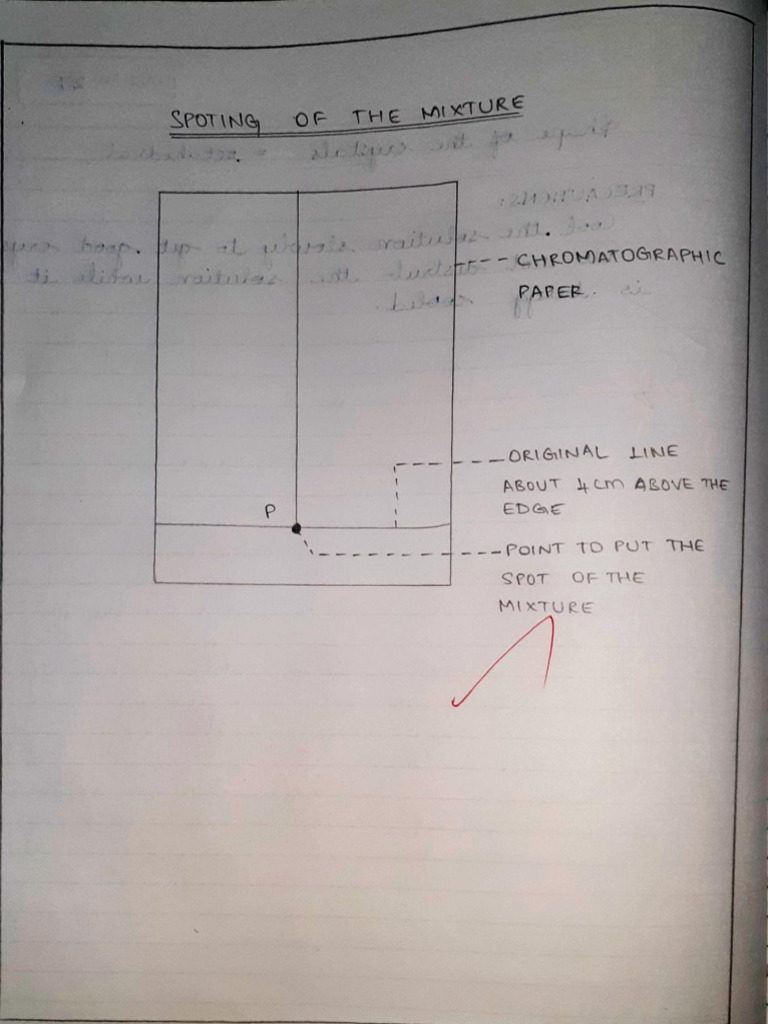 SPOTING OF THE MIXTURE
CHROMATOGRAPHIC
PAPER.
ORIGINAL LINE
ABOUT 4 CM ABOVE THE
EDGE
P
POINT TO PUT THE
SPOT OF THE
MIXTURE